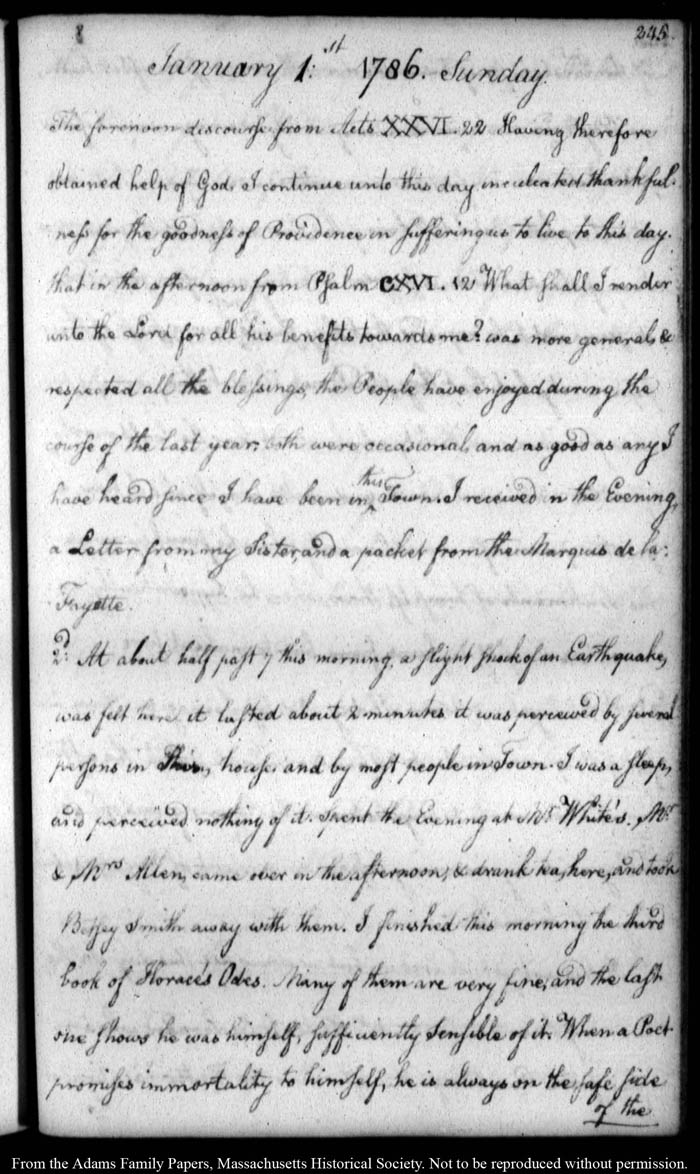 245
January 1:st 1786. Sunday.
The forenoon discourse from Acts XXVI. 22 Having therefore
obtained help of God, I continue unto this day, inculcated thankful-
ness for the goodness of Providence in suffering us to live to this day.
that in the afternoon from Psalm CXVI. 12 What shall I render
unto the Lord for all his benefits towards me? was more general, &
respected all the blessings, the People have enjoyed during the
course of the last year; both were occasional, and as good as any I
have heard since I have been in this Town. I received in the Evening,
a Letter from my Sister, and a packet from the Marquis de la.
Fayette.
2d: At about half past 7 this morning, a slight shock of an Earthquake,
was felt here it lasted about 2 minutes it was perceived by several
persons in this, house, and by most people in Town. I was a sleep,
and perceived nothing of it. Spent the Evening at Mr. White's. Mr
& Mrs Allen, came over in the afternoon, & drank tea, here, and took
Betsey Smith away with them. I finished this morning the third
book of Horace's Odes. Many of them are very fine, and the last
one shows he was himself, sufficiently Sensible of it. When a Poet
promises immortality to himself, he is always on the safe side
of the
From the Adams Family Papers, Massachusetts Historical Society. Not to be reproduced without permission.